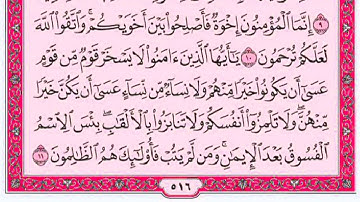 ٩ إِنَّمَا ٱلْمُؤْمِنُونَ إِخْوَةٌ فَأَصْلِحُوا۟ بَيْنَ أَخَوَيْكُمْ ۚ وَٱتَّقُوا۟ ٱللَّهَ
لَعَلَّكُمْ تُرْحَمُونَ ١٠ يَـٰٓأَيُّهَا ٱلَّذِينَ ءَامَنُوا۟ لَا يَسْخَرْ قَوْمٌ مِّن قَوْمٍ
عَسَىٰٓ أَن يَكُونُوا۟ خَيْرًا مِّنْهُمْ وَلَا نِسَآءٌ مِّن نِّسَآءٍ عَسَىٰٓ أَن يَكُنَّ خَيْرًا
مِّنْهُنَّ ۖ وَلَا تَلْمِزُوٓا۟ أَنفُسَكُمْ وَلَا تَنَابَزُوا۟ بِٱلْأَلْقَـٰبِ ۖ بِئْسَ ٱلِٱسْمُ
ٱلْفُسُوقُ بَعْدَ ٱلْإِيمَـٰنِ ۚ وَمَن لَّمْ يَتُبْ فَأُو۟لَـٰٓئِكَ هُمُ ٱلظَّـٰلِمُونَ ١١
٥١٦